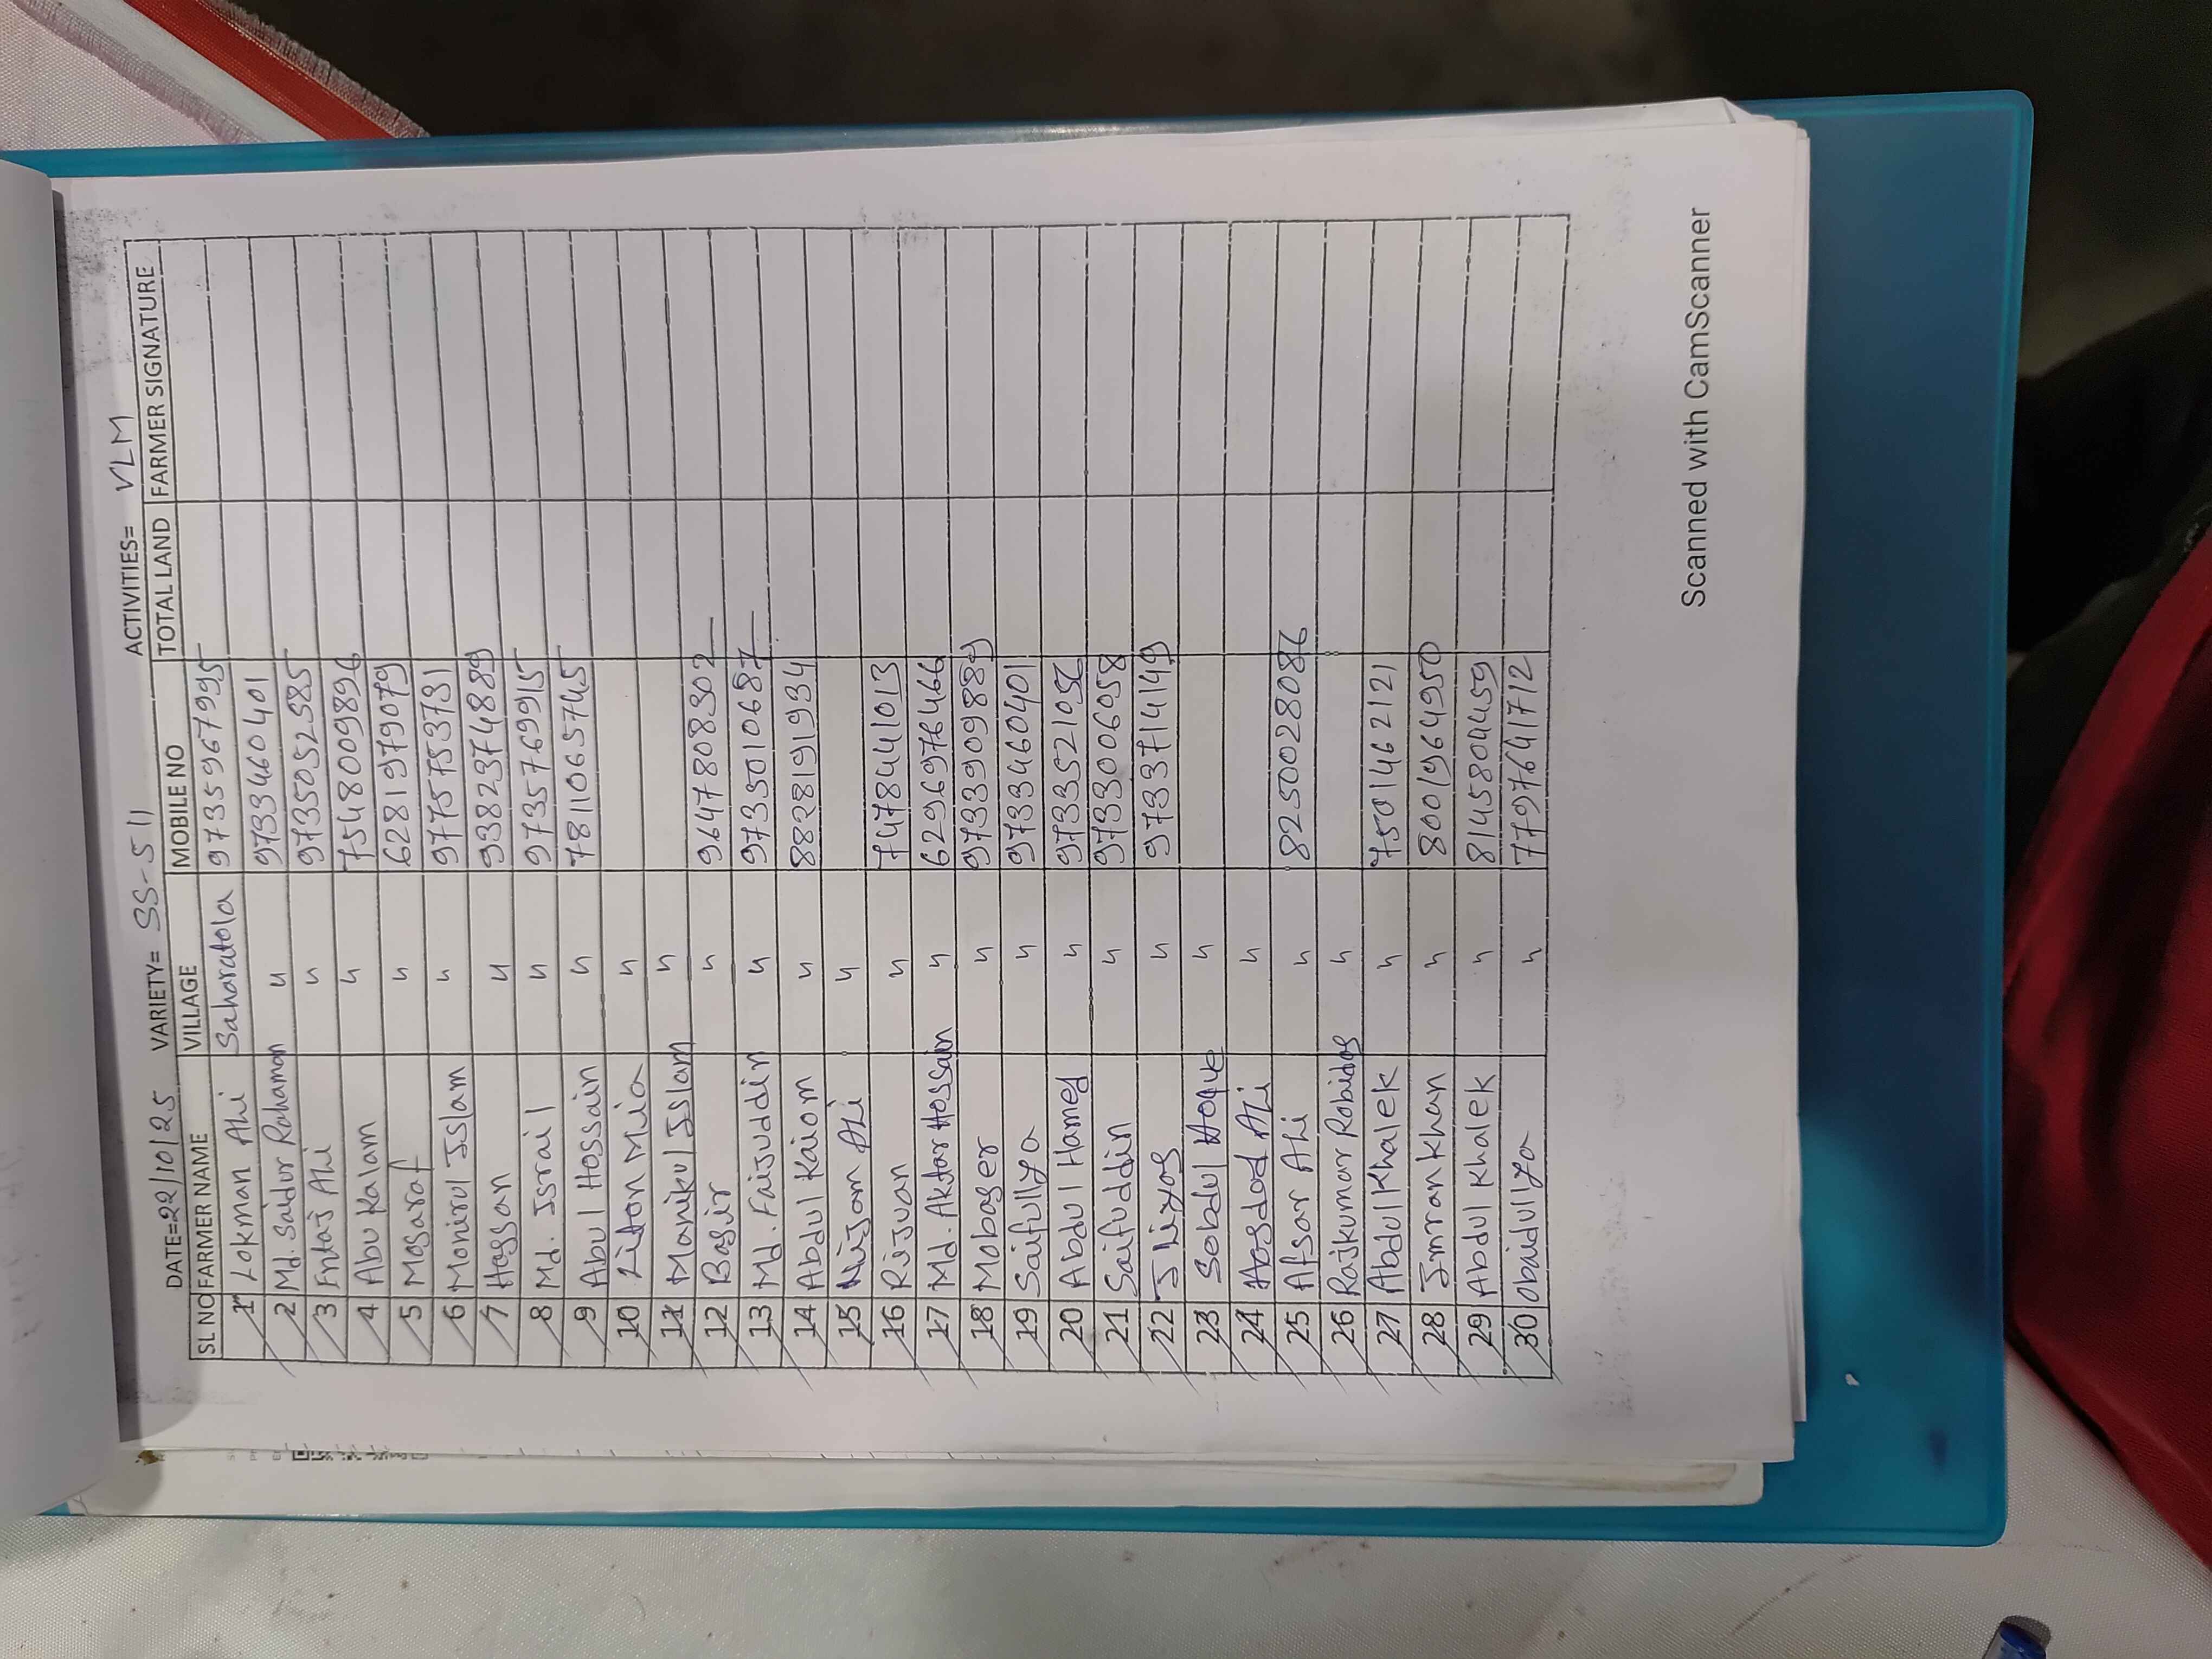 DATE=22/10/25 VARIETY= SS-511 ACTIVITIES= VLM
SL NO FARMER NAME VILLAGE MOBILE NO TOTAL LAND FARMER SIGNATURE
1 Lokman Ali Saharatola 9735967995
2 Md. Saidur Rahaman " 9733460401
3 Entaj Ali " 9735052585
4 Abu Kalam " 7548009896
5 Mosaraf " 6281979079
6 Monirul Islam " 9775753731
7 Hossan " 9382374889
8 Md. Israil " 9735769915
9 Abul Hossain " 7811065745
10 Liton Mia "
11 Monikul Islam "
12 Bosir " 9647808302
13 Md. Faijuddin " 9735010687
14 Abdul Kaiom " 8828191934
15 Nijam Ali "
16 Rijuan " 7478441013
17 Md. Aktar Hossain " 6296976466
18 Mobaser " 9733909889
19 Saifullya " 9733460401
20 Abdul Hamed " 9733521056
21 Saifuddin " 9733006058
22 Iliyas " 9733714149
23 Sobdul Hoque "
24 Hosdod Ali "
25 Afsar Ali " 8250028086
26 Rajkumar Robidas "
27 Abdul Khalek " 7501462121
28 Imran Khan " 8001964950
29 Abdul Khalek " 8145804459
30 Obaidullya " 7797641712
Scanned with CamScanner